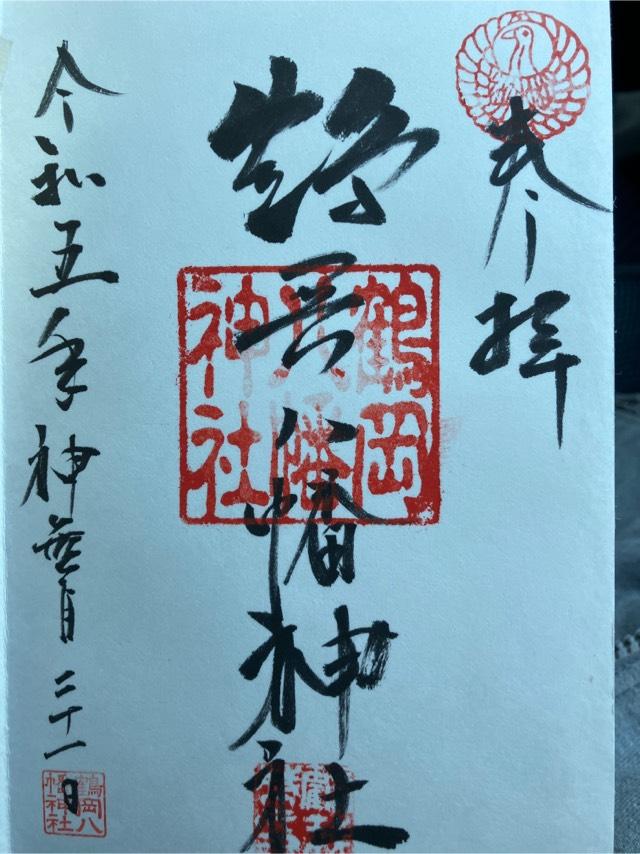 参拝
鶴岡八幡神社
鶴岡
八幡
神社
令和五年神無月二十一日
鶴岡八
幡神社